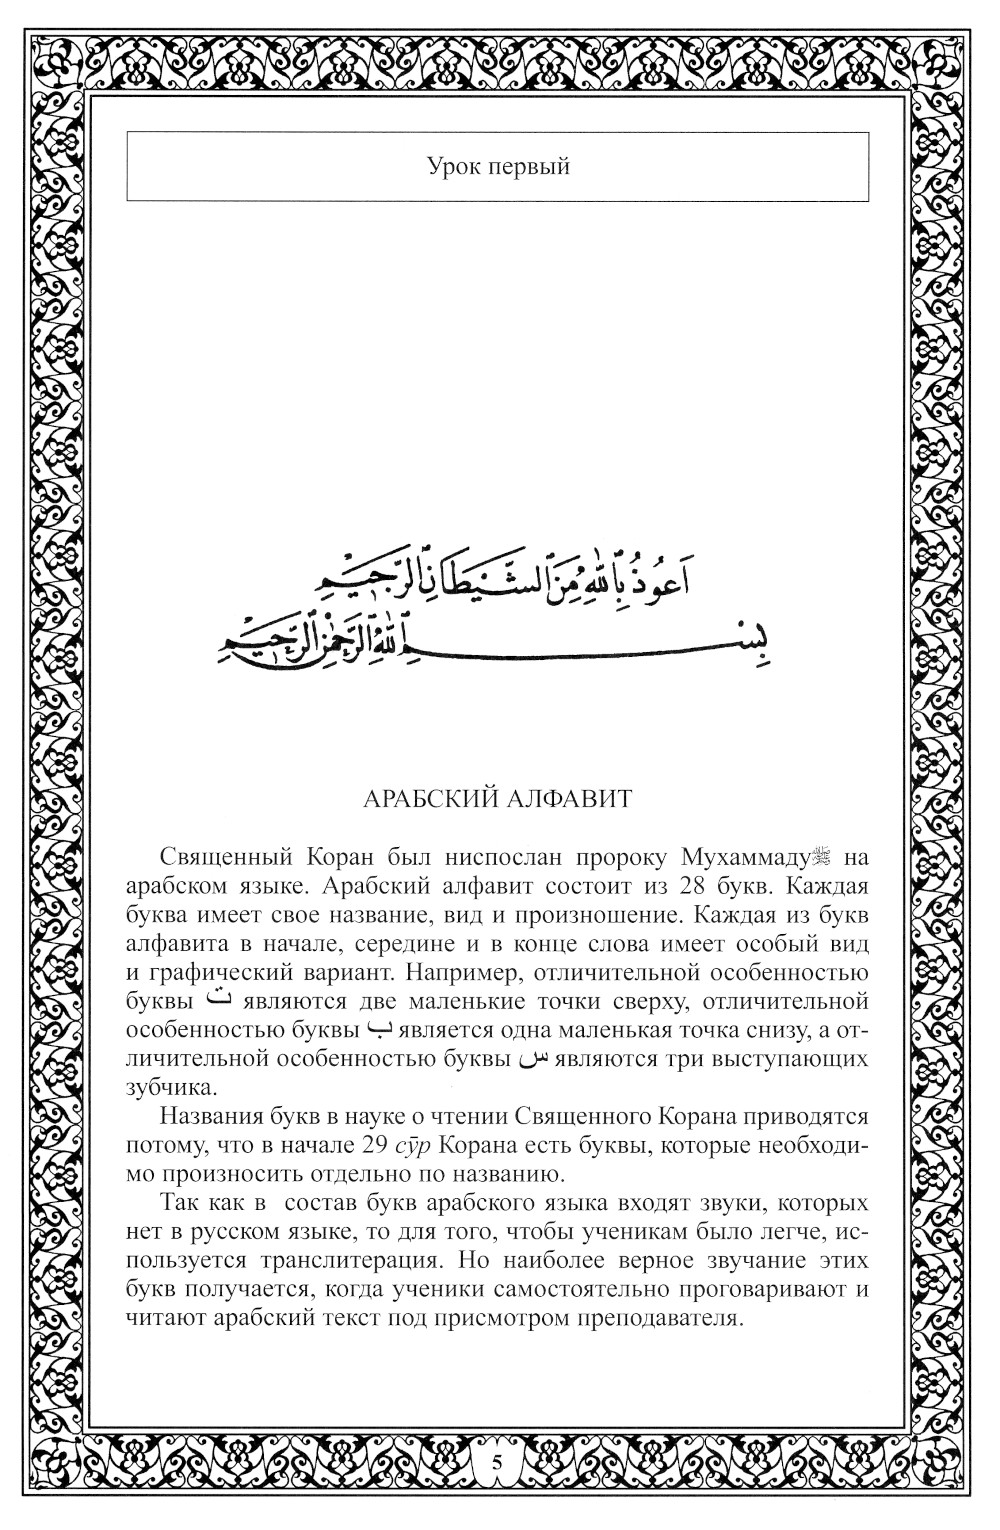 Урок первый
اَعُوذُ بِٱللّٰهِ مِنَ ٱلشَّيْطَانِ ٱلرَّجِيمِ
بِسْمِ ٱللّٰهِ ٱلرَّحْمٰنِ ٱلرَّحِيمِ
АРАБСКИЙ АЛФАВИТ
Священный Коран был ниспослан пророку Мухаммадуﷺ на
арабском языке. Арабский алфавит состоит из 28 букв. Каждая
буква имеет свое название, вид и произношение. Каждая из букв
алфавита в начале, середине и в конце слова имеет особый вид
и графический вариант. Например, отличительной особенностью
буквы ت являются две маленькие точки сверху, отличительной
особенностью буквы ب является одна маленькая точка снизу, а от-
личительной особенностью буквы س являются три выступающих
зубчика.
Названия букв в науке о чтении Священного Корана приводятся
потому, что в начале 29 сӯр Корана есть буквы, которые необходи-
мо произносить отдельно по названию.
Так как в состав букв арабского языка входят звуки, которых
нет в русском языке, то для того, чтобы ученикам было легче, ис-
пользуется транслитерация. Но наиболее верное звучание этих
букв получается, когда ученики самостоятельно проговаривают и
читают арабский текст под присмотром преподавателя.
5